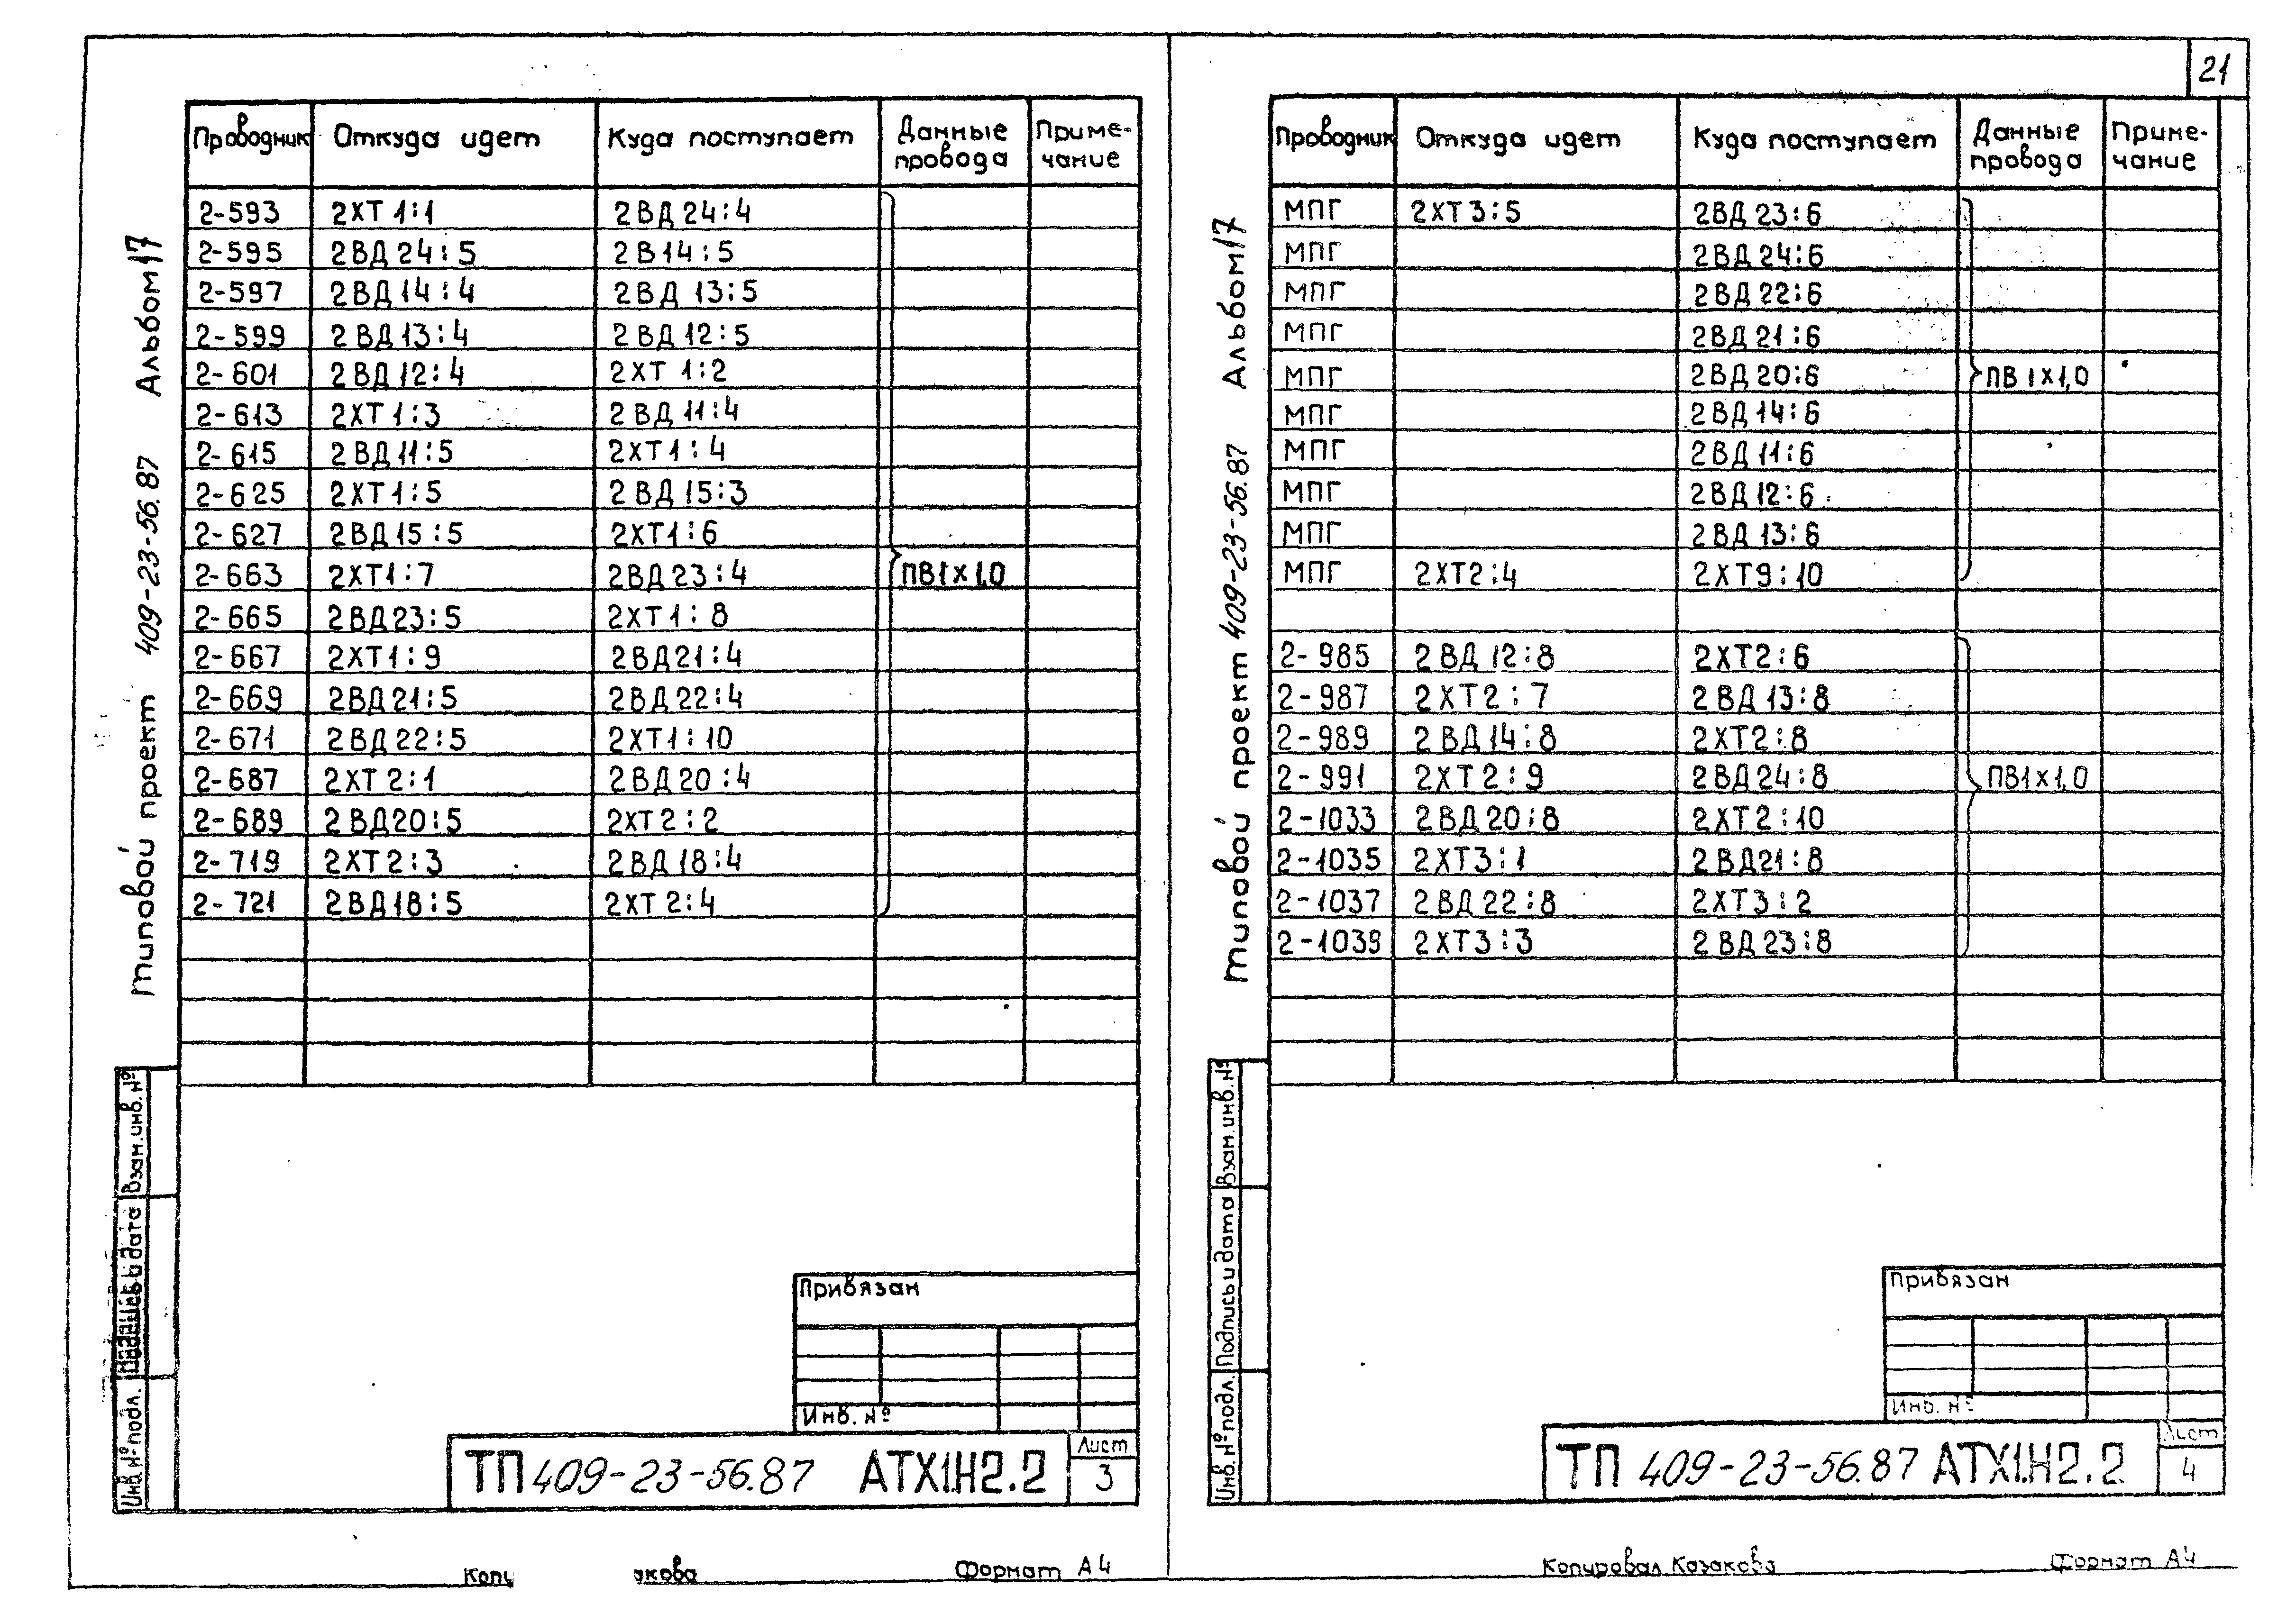 21
Проводник Откуда идет Куда поступает Данные провода Приме-чание
2-593 2ХТ1:1 2ВД24:4
2-595 2ВД24:5 2В14:5
2-597 2ВД14:4 2ВД13:5
2-599 2ВД13:4 2ВД12:5
2-601 2ВД12:4 2ХТ1:2
2-613 2ХТ1:3 2ВД11:4
2-615 2ВД11:5 2ХТ1:4
2-625 2ХТ1:5 2ВД15:3
2-627 2ВД15:5 2ХТ1:6
2-663 2ХТ1:7 2ВД23:4 ПВ1х1,0
2-665 2ВД23:5 2ХТ1:8
2-667 2ХТ1:9 2ВД21:4
2-669 2ВД21:5 2ВД22:4
2-671 2ВД22:5 2ХТ1:10
2-687 2ХТ2:1 2ВД20:4
2-689 2ВД20:5 2ХТ2:2
2-719 2ХТ2:3 2ВД18:4
2-721 2ВД18:5 2ХТ2:4
Типовой проект 409-23-56.87 Альбом 17
Взам.инв.№
и дата
Инв.№подл.
Привязан
Инв. №
ТП 409-23-56.87 АТХ1.Н2.2
Лист
3
Формат А4
Проводник Откуда идет Куда поступает Данные провода Приме-чание
МПГ 2ХТ3:5 2ВД23:6
МПГ 2ВД24:6
МПГ 2ВД22:6
МПГ 2ВД21:6
МПГ 2ВД20:6 ПВ1х1,0
МПГ 2ВД14:6
МПГ 2ВД11:6
МПГ 2ВД12:6
МПГ 2ВД13:6
МПГ 2ХТ2:4 2ХТ9:10
2-985 2ВД12:8 2ХТ2:6
2-987 2ХТ2:7 2ВД13:8
2-989 2ВД14:8 2ХТ2:8
2-991 2ХТ2:9 2ВД24:8 ПВ1х1,0
2-1033 2ВД20:8 2ХТ2:10
2-1035 2ХТ3:1 2ВД21:8
2-1037 2ВД22:8 2ХТ3:2
2-1039 2ХТ3:3 2ВД23:8
Типовой проект 409-23-56.87 Альбом 17
Взам.инв.№
Подпись и дата
Инв.№подл.
Привязан
Инв. №
ТП 409-23-56.87 АТХ1.Н2.2
Лист
4
Копировал Казакова Формат А4